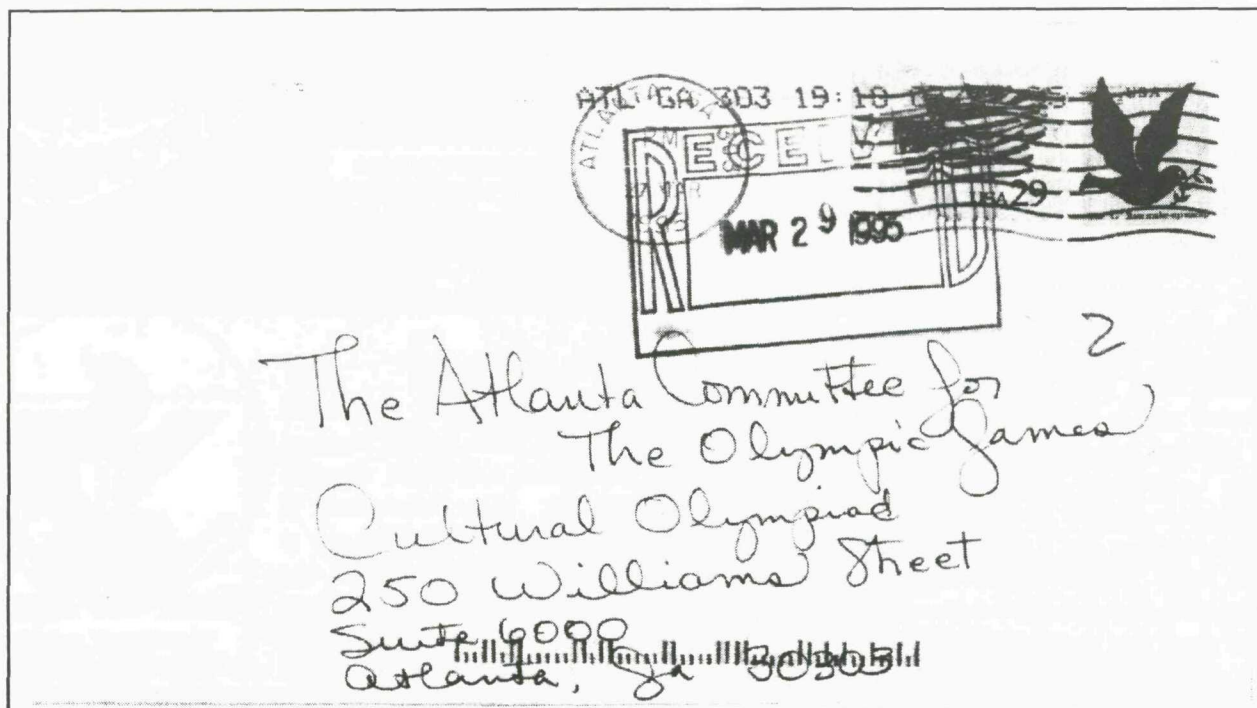 ATL GA 303 19:18
ATLANTA GA
PM
MAR
RECEIVED
MAR 29 1995
USA
USA 29
2
The Atlanta Committee for
The Olympic Games
Cultural Olympiad
250 Williams Street
Suite 6000
Atlanta, Ga 30303